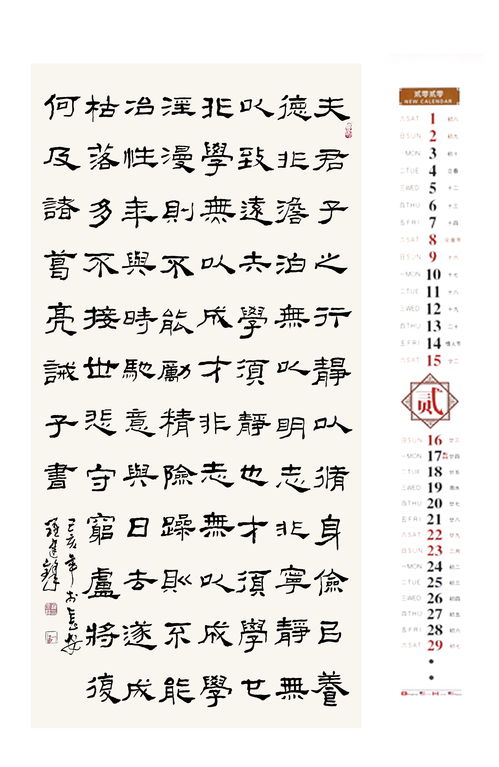 夫君子之行靜以脩身儉㠯養
德非澹泊無以明志非寧靜無
以致遠夫學須靜也才須學也
非學無以成才非志無以成學
淫漫則不能勵精險躁則不能
冶性年與時馳意與日去遂成
枯落多不接世悲守窮廬將復
何及諸葛亮誡子書
己亥年於長安
貳零貳零
NEW CALENDAR
六SAT 1 初八
日SUN 2 初九
一MON 3 初十
二TUE 4 立春
三WED 5 十二
四THU 6 十三
五FRI 7 十四
六SAT 8 元宵节
日SUN 9 十六
一MON 10 十七
二TUE 11 十八
三WED 12 十九
四THU 13 二十
五FRI 14 情人节
六SAT 15 廿二
貳
日SUN 16 廿三
一MON 17 廿四
二TUE 18 廿五
三WED 19 雨水
四THU 20 廿七
五FRI 21 廿八
六SAT 22 廿九
日SUN 23 二月
一MON 24 初二
二TUE 25 初三
三WED 26 初四
四THU 27 初五
五FRI 28 初六
六SAT 29 初七